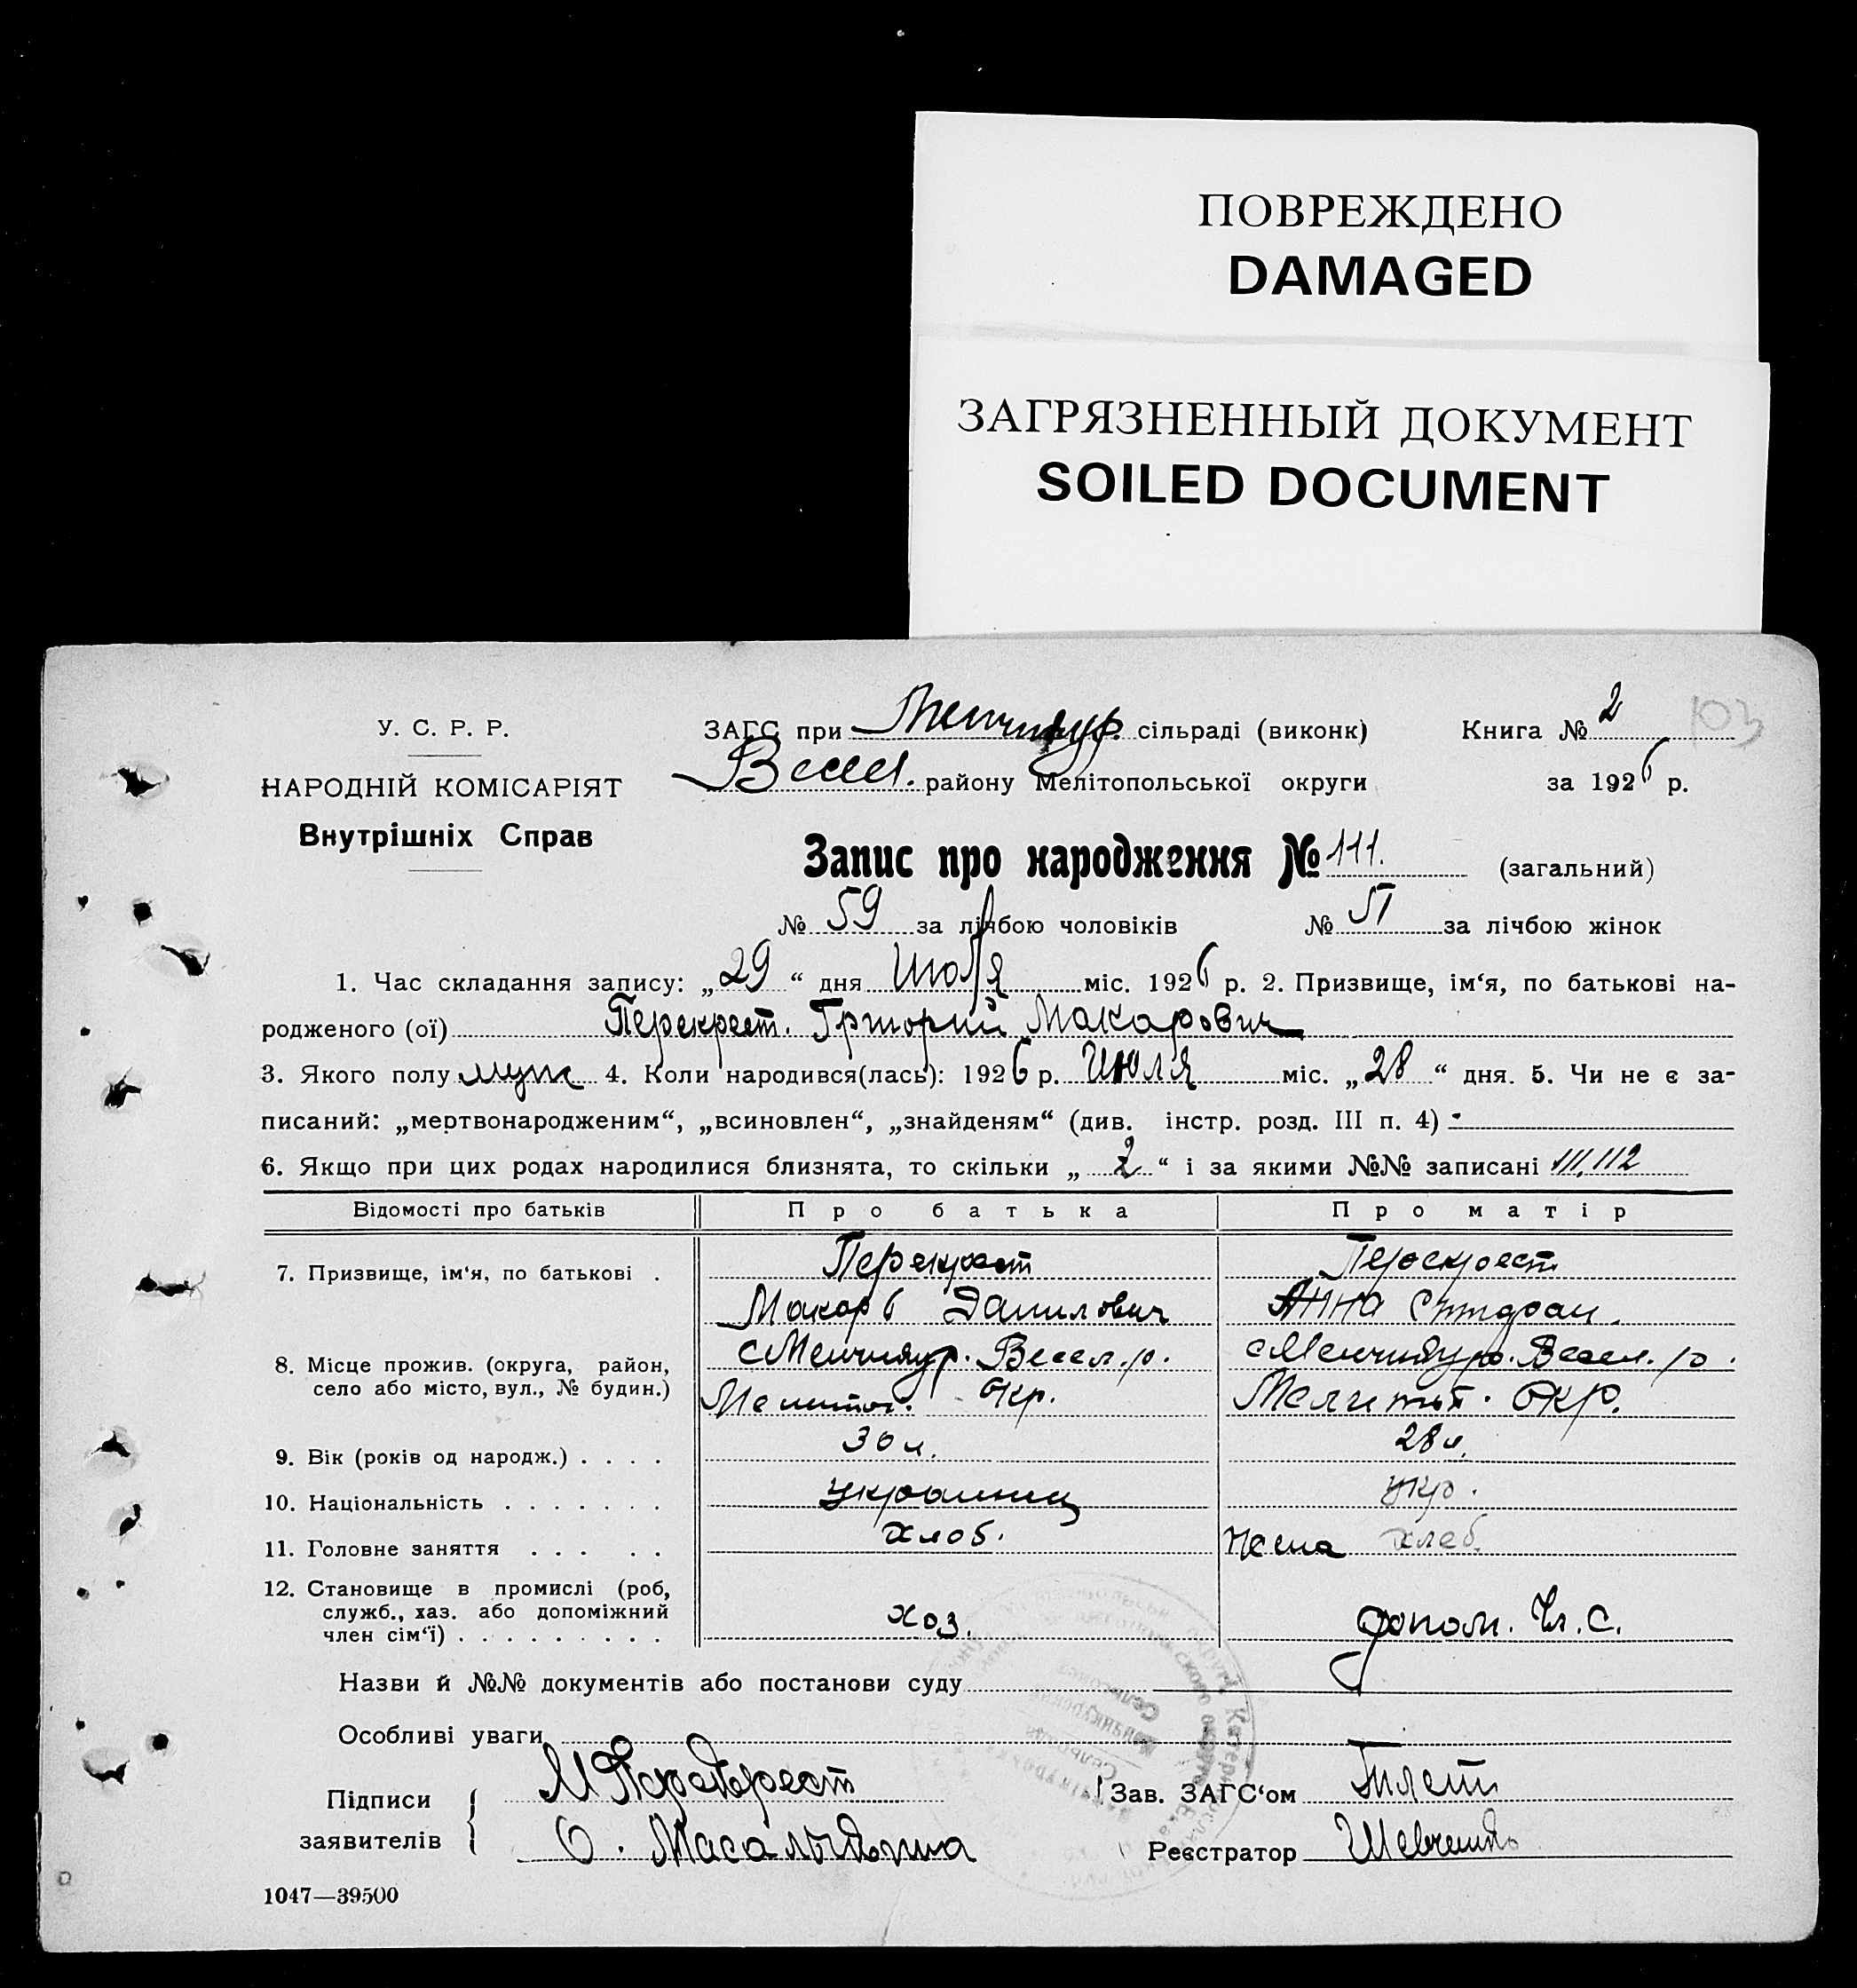 ПОВРЕЖДЕНО
DAMAGED
ЗАГРЯЗНЕННЫЙ ДОКУМЕНТ
SOILED DOCUMENT
103
У. С. Р. Р. ЗАГС при Менчикур. сільраді (виконк) Книга № 2
НАРОДНІЙ КОМІСАРІЯТ Весел. району Мелітопольської округи за 1926 р.
Внутрішніх Справ
Запис про народження № 111. (загальний)
№ 59 за лічбою чоловіків № 51 за лічбою жінок
1. Час складання запису: „29“ дня Июля міс. 1926 р. 2. Призвище, ім‘я, по батькові на-
родженого (ої) Перекрест. Григорий Макарович
3. Якого полу муж 4. Коли народився(лась): 1926 р. Июля міс. „28“ дня. 5. Чи не є за-
писаний: „мертвонародженим“, „всиновлен“, „знайденям“ (див. інстр. розд. III п. 4) -
6. Якщо при цих родах народилися близнята, то скільки „2“ і за якими №№ записані 111, 112
Відомості про батьків Про батька Про матір
7. Призвище, ім‘я, по батькові . Перекрест Перекрест
Макар Данилович Анна
8. Місце прожив. (округа, район, с Менчикур. Весел. р. с Менчикур. Весел. р.
село або місто, вул., № будин.) Мелитоп. Окр. Мелитоп. Окр.
9. Вік (років од народж.) . . . . 30 л. 28 л.
10. Національність . . . . . . . украинец укр.
11. Головне заняття . . . . . хлоб. жена хлеб.
12. Становище в промислі (роб,
служб., хаз. або допоміжний хоз. допом. чл. с.
член сім‘ї) . . . . . . . . .
Назви й №№ документів або постанови суду
Особливі уваги
Підписи М Перекрест Зав. ЗАГС‘ом
заявителів О. Масалыкина Реєстратор Шевченко
1047—39500